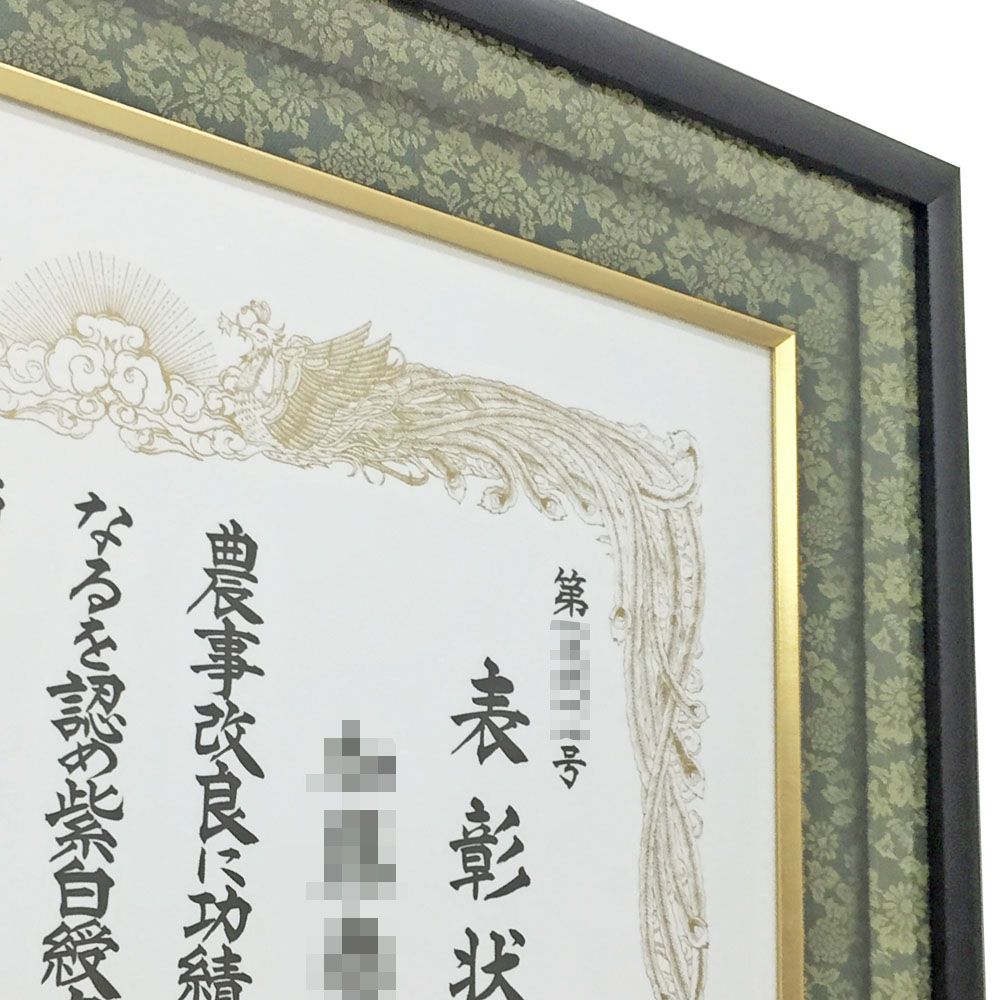 第 号
表彰状
農事改良に功績
なるを認め紫白綬